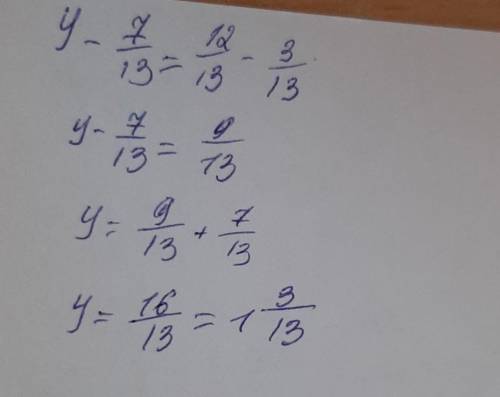 y - 7/13 = 12/13 - 3/13
y - 7/13 = 9/13
y = 9/13 + 7/13
y = 16/13 = 1 3/13